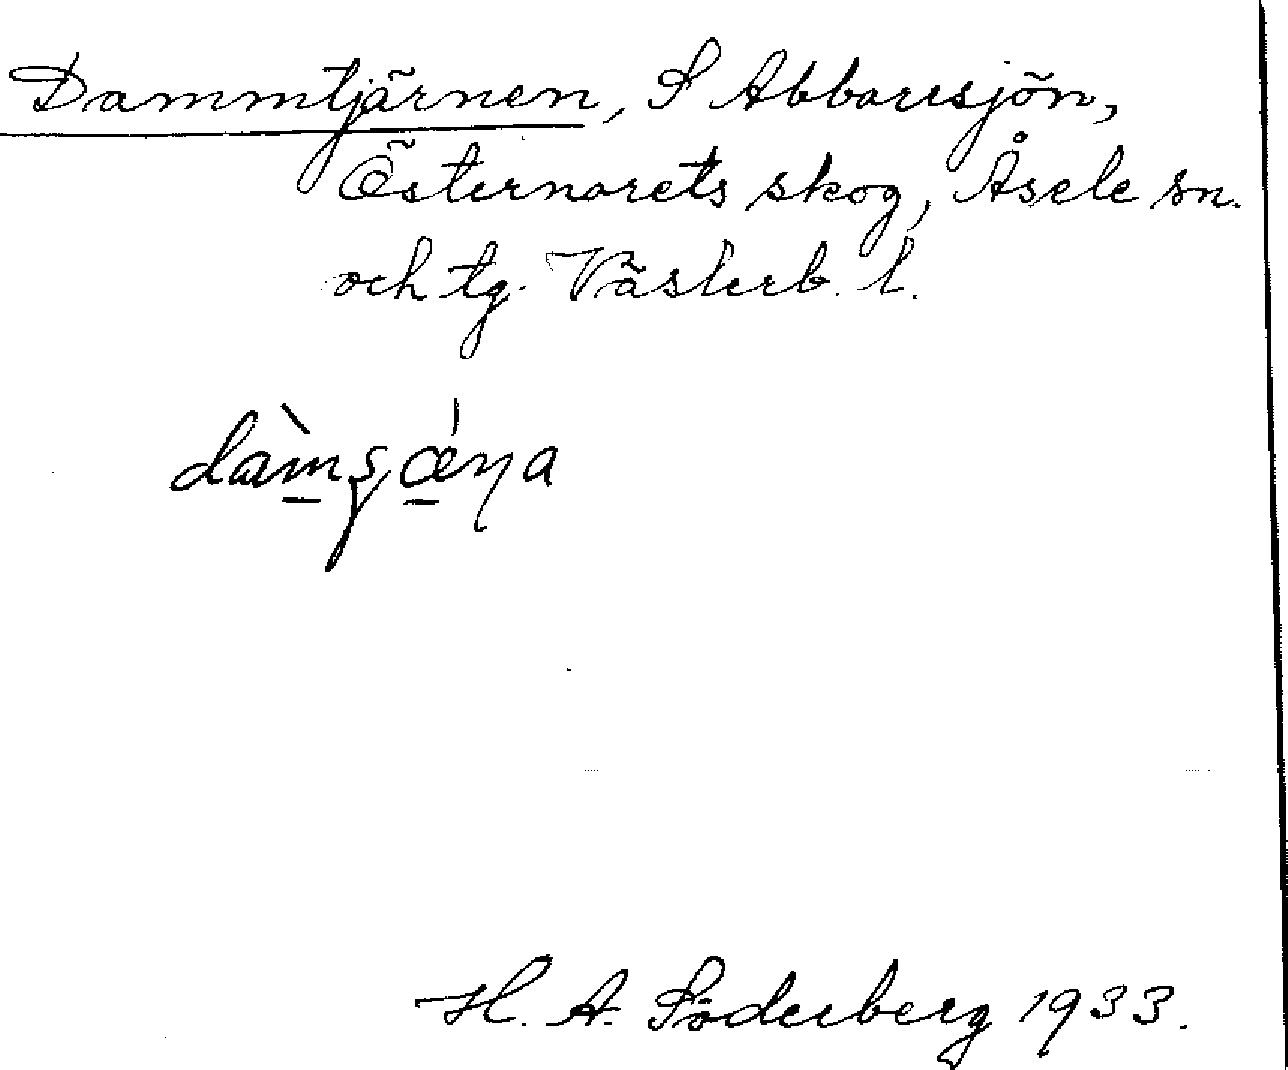 Dammtjärnen, S Abborrsjön,
Östernorets skog, Åsele sn.
och tg. Västerb. l.
H. A. Söderberg 1933.